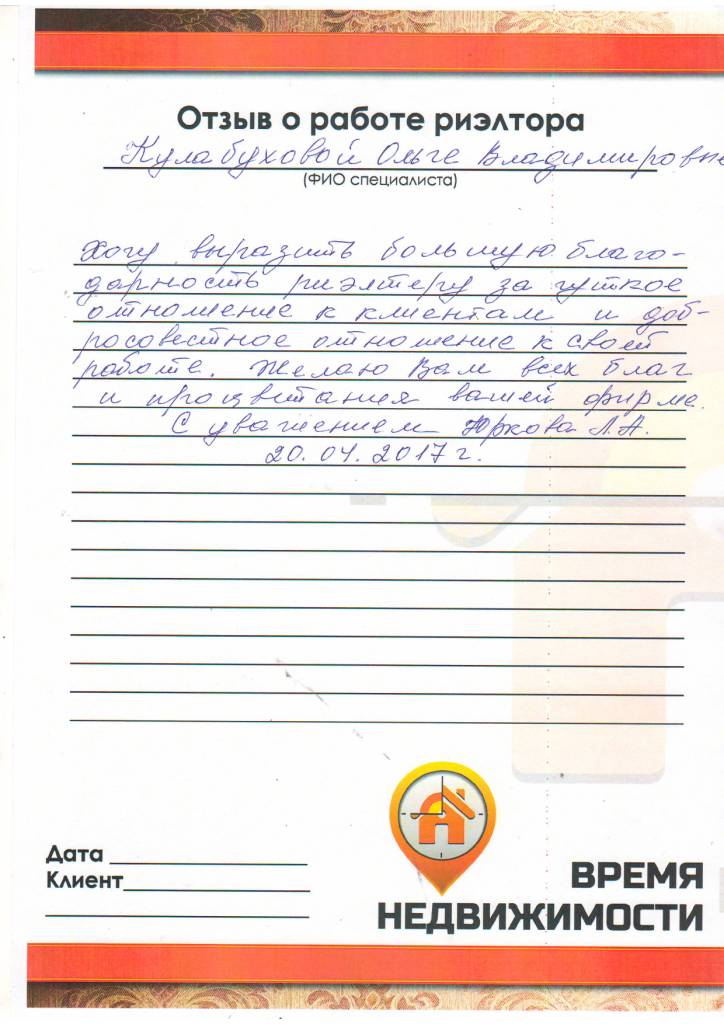 Отзыв о работе риэлтора
Кулабуховой Ольге Владимировне
(ФИО специалиста)
Хочу выразить большую благо-
дарность риэлтеру за чуткое
отношение к клиентам и доб-
росовестное отношение к своей
работе. Желаю Вам всех благ
и процветания вашей фирме.
С уважением Юркова Л.А.
20.04.2017 г.
Дата
Клиент
ВРЕМЯ
НЕДВИЖИМОСТИ